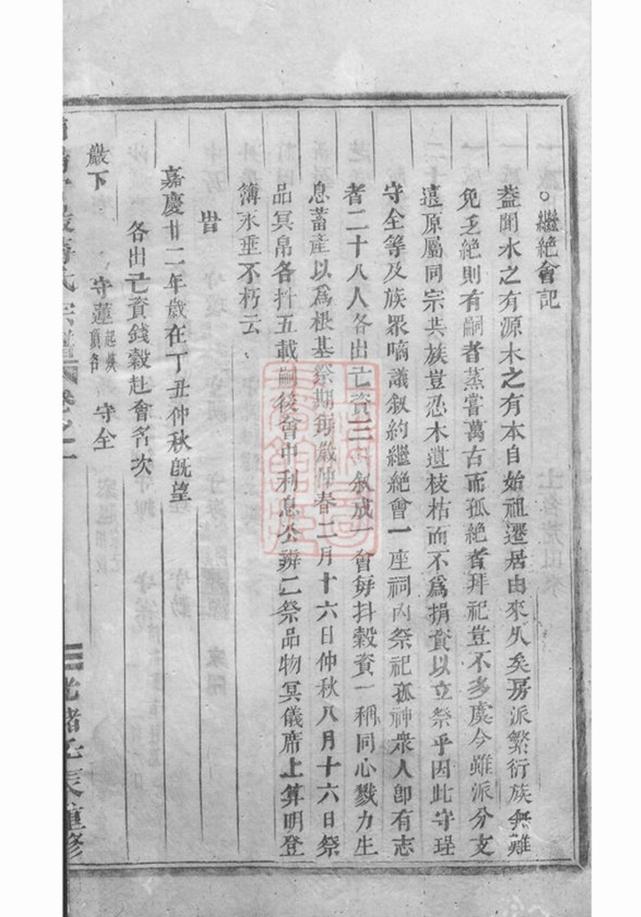 ○繼絶會記
葢聞水之有源木之有本自始祖遷居由來久矣房派繁衍族無難
免乏絶則有嗣者蒸嘗萬古而孤絶者拜祀豈不多虔今雖派分支
遠原屬同宗共族豈忍木遺枝枯而不爲捐資以立祭乎因此守珵
守全等及族眾啇議叙約繼絶會一座祠內祭祀孤神衆人卽有志
者二十八人各出亡資三叙成一會每抖穀資一稱同心戮力生
息蓄產以爲根基祭期每歲仲春二月十六日仲秋八月十六日祭
品冥帛各抖五載嗣後會中利息公辨二祭品物冥儀席上算明登
簿永垂不朽云
旹
嘉慶廿二年歲在丁丑仲秋旣望
各出亡資錢穀赴會名次
嚴下 守蓮 守全
氏宗譜 卷之一 光緒壬辰重修